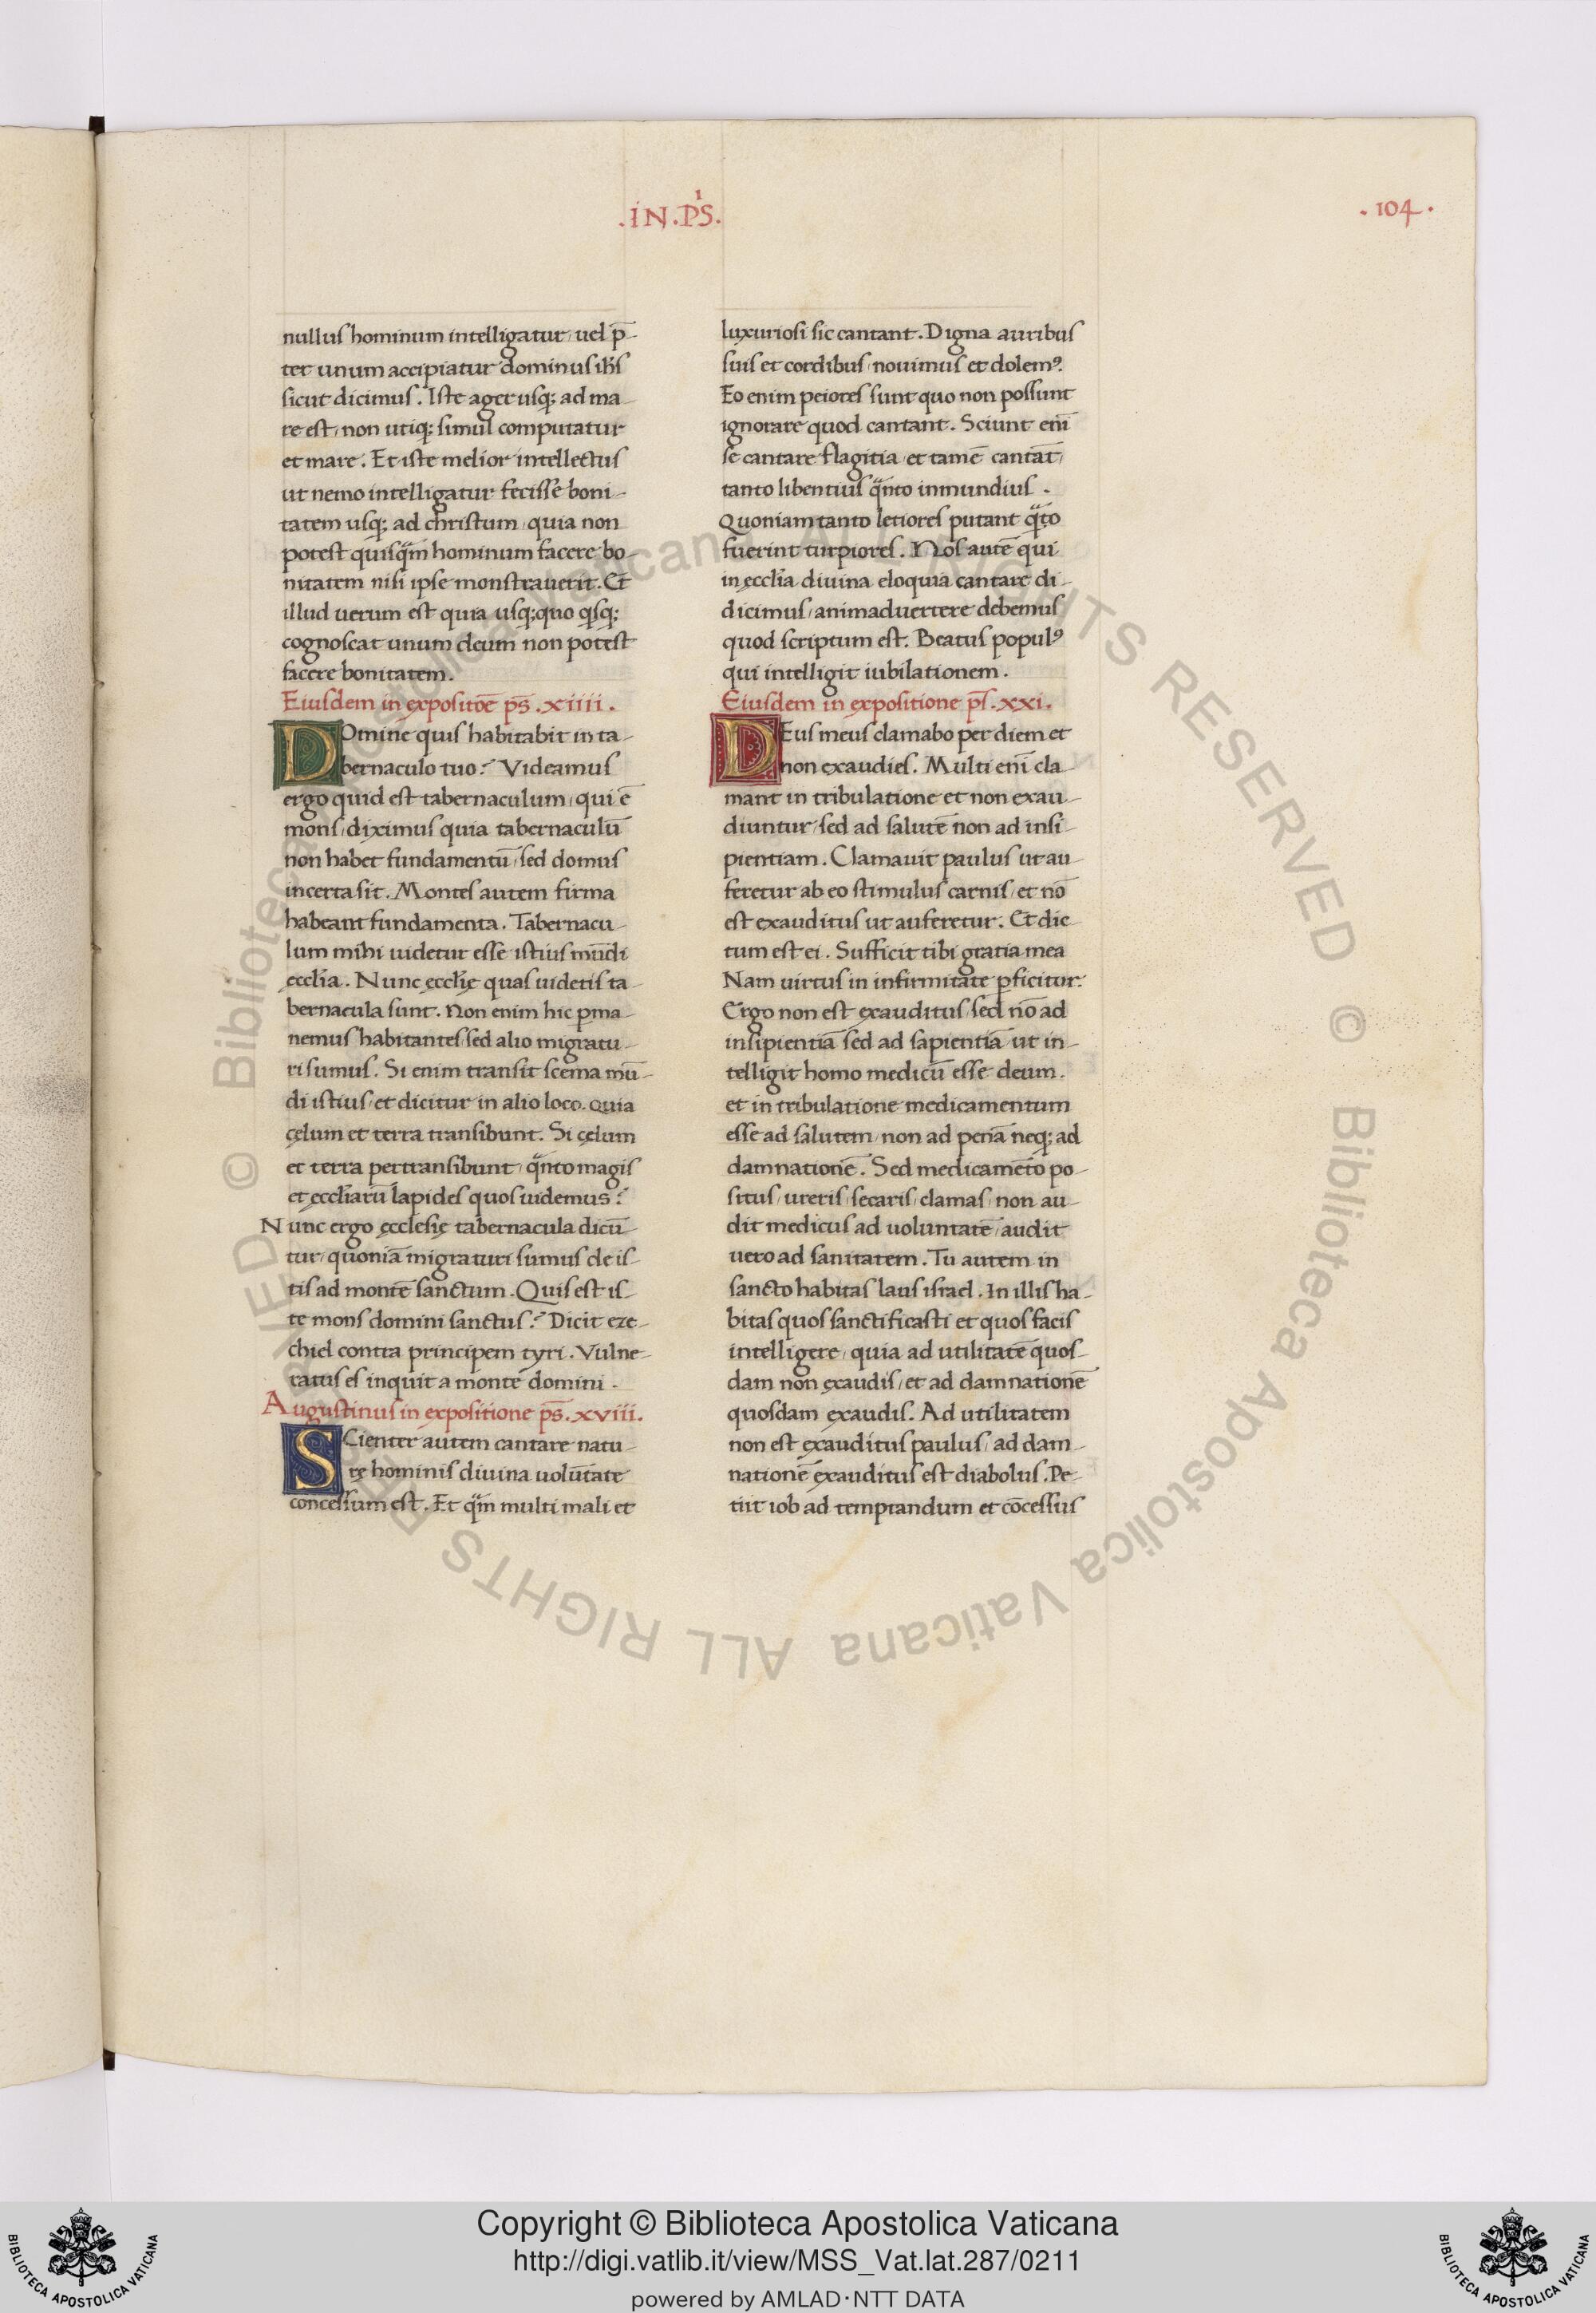 .IN.PS.
.104.
nullus hominum intelligatur, uel p̄-
ter unum accipiatur dominus ih̄s
sicut dicimus. Iste ager usq; ad ma-
re est, non utiq; simul computatur
et mare. Et iste melior intellectus
ut nemo intelligatur fecisse boni-
tatem usq; ad christum, quia non
potest quisq̄m hominum facere bo-
nitatem nisi ipse monstrauerit. Et
illud uerum est quia usq;quo qsq;
cognoscat unum deum non potest
facere bonitatem.
Eiusdem in expositōe ps̄.xiiii.
DOmine quis habitabit in ta-
bernaculo tuo? Videamus
ergo quid est tabernaculum, qui ē
mons, diximus quia tabernaculū
non habet fundamentū, sed domus
incerta sit. Montes autem firma
habeant fundamenta. Tabernacu-
lum mihi uidetur esse istius mūdi
ęcclīa. Nunc ęcclīę quas uidetis ta-
bernacula sunt. Non enim hic ꝑma-
nemus habitantes sed alio migratu-
ri sumus. Si enim transit scema mū-
di istius, et dicitur in alio loco. quia
cęlum et terra transibunt. Si cęlum
et terra pertransibunt, q̄nto magis
et ęcclīarū lapides quos uidemus?
Nunc ergo ęcclesię tabernacula dicū-
tur, quoniā migraturi sumus de is-
tis ad montē sanctum. Quis est is-
te mons domini sanctus? Dicit eze-
chiel contra principem tyri. Vulne-
ratus es inquit a monte domini.
Augustinus in expositione ps̄.xviii.
SCienter autem cantare natu-
rę hominis diuina uolūtate
concessum est. Et q̄m multi mali et
luxuriosi sic cantant. Digna auribus
suis et cordibus, nouimus et dolemꝰ.
Eo enim peiores sunt quo non possunt
ignorare quod cantant. Sciunt enī
se cantare flagitia, et tamē cantāt,
tanto libentius q̄nto inmundius.
Quoniam tanto letiores putant q̄to
fuerint turpiores. Nos autē qui
in ęcclīa diuina eloquia cantare di-
dicimus, animaduertere debemus
quod scriptum est. Beatus populꝰ
qui intelligit iubilationem.
Eiusdem in expositione ps̄.xxi.
DEus meus clamabo per diem et
non exaudies. Multi enī cla-
mant in tribulatione et non exau-
diuntur, sed ad salutē non ad insi-
pientiam. Clamauit paulus ut au-
feretur ab eo stimulus carnis, et nō
est exauditus ut auferetur. Et dic-
tum est ei. Sufficit tibi gratia mea
Nam uirtus in infirmitate ꝑficitur.
Ergo non est exauditus, sed nō ad
insipientiā sed ad sapientiā ut in-
telligit homo medicū esse deum.
et in tribulatione medicamentum
esse ad salutem, non ad penā neq; ad
damnationē. Sed medicamēto po-
situs, ureris, secaris, clamas, non au-
dit medicus ad uoluntatē, audit
uero ad sanitatem. Tu autem in
sancto habitas laus israel. In illis ha-
bitas quos sanctificasti et quos facis
intelligere, quia ad utilitatē quos-
dam non exaudis, et ad damnationē
quosdam exaudis. Ad utilitatem
non est exauditus paulus, ad dam-
nationē exauditus est diabolus. Pe-
tiit iob ad temptandum et cōcessus
Copyright © Biblioteca Apostolica Vaticana
http://digi.vatlib.it/view/MSS_Vat.lat.287/0211
powered by AMLAD·NTT DATA
BIBLIOTECA APOSTOLICA VATICANA
BIBLIOTECA APOSTOLICA VATICANA
© Biblioteca Apostolica Vaticana ALL RIGHTS RESERVED
© Biblioteca Apostolica Vaticana ALL RIGHTS RESERVED